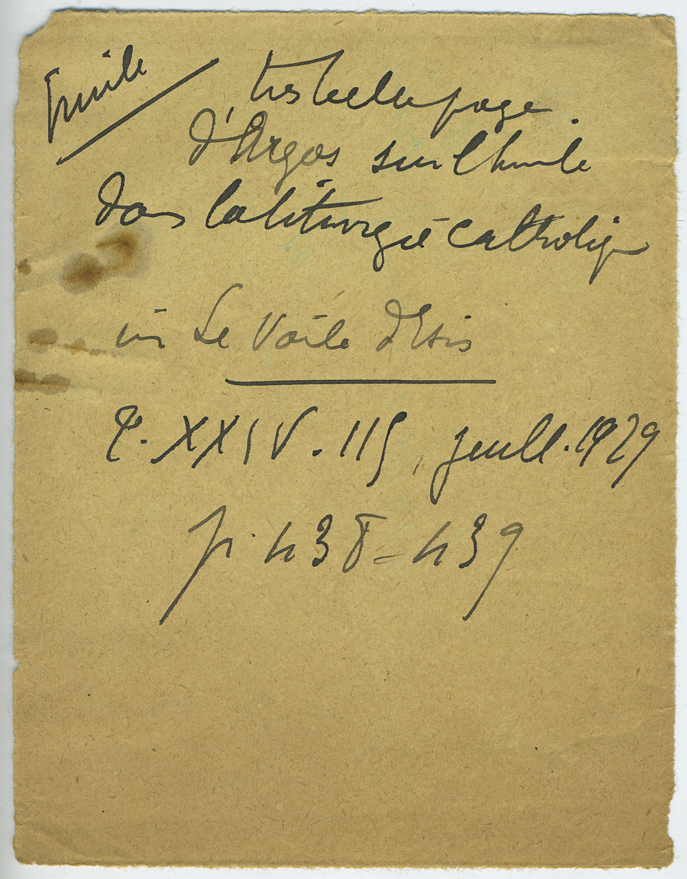 Huile
très belle page
d'Argos sur l'huile
dans la liturgie catholique
in Le Voile d'Isis
T. XXXIV. 115, juill. 1929
p. 438-439